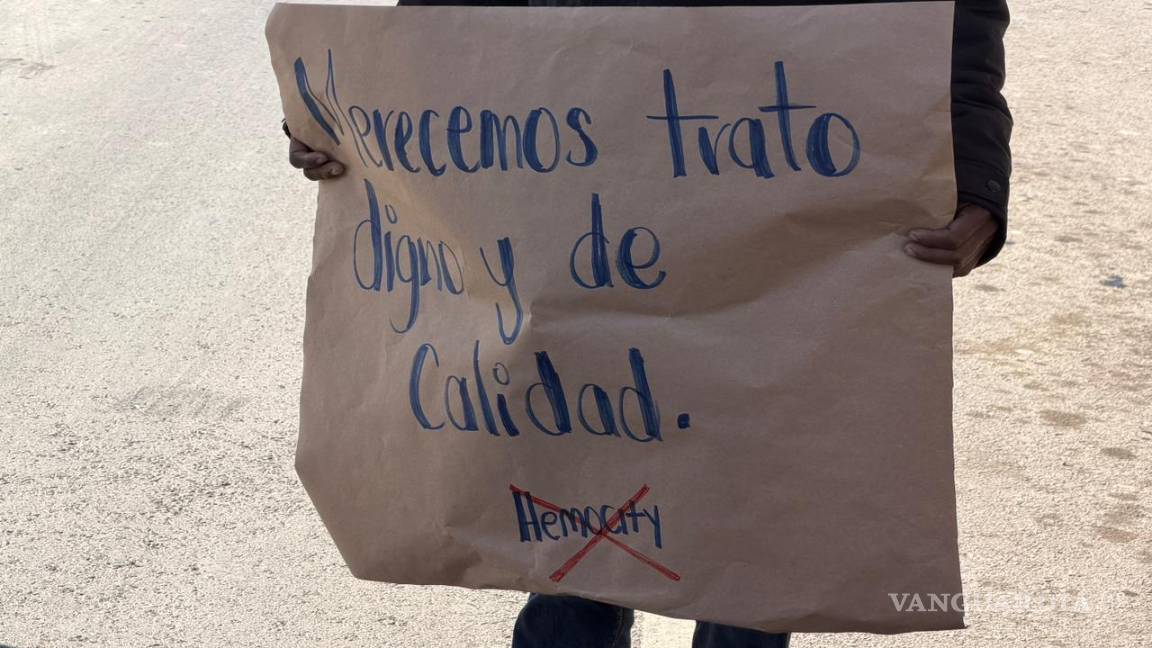 Merecemos trato
digno y de
Calidad.
Hemocity
VANGUARDIA